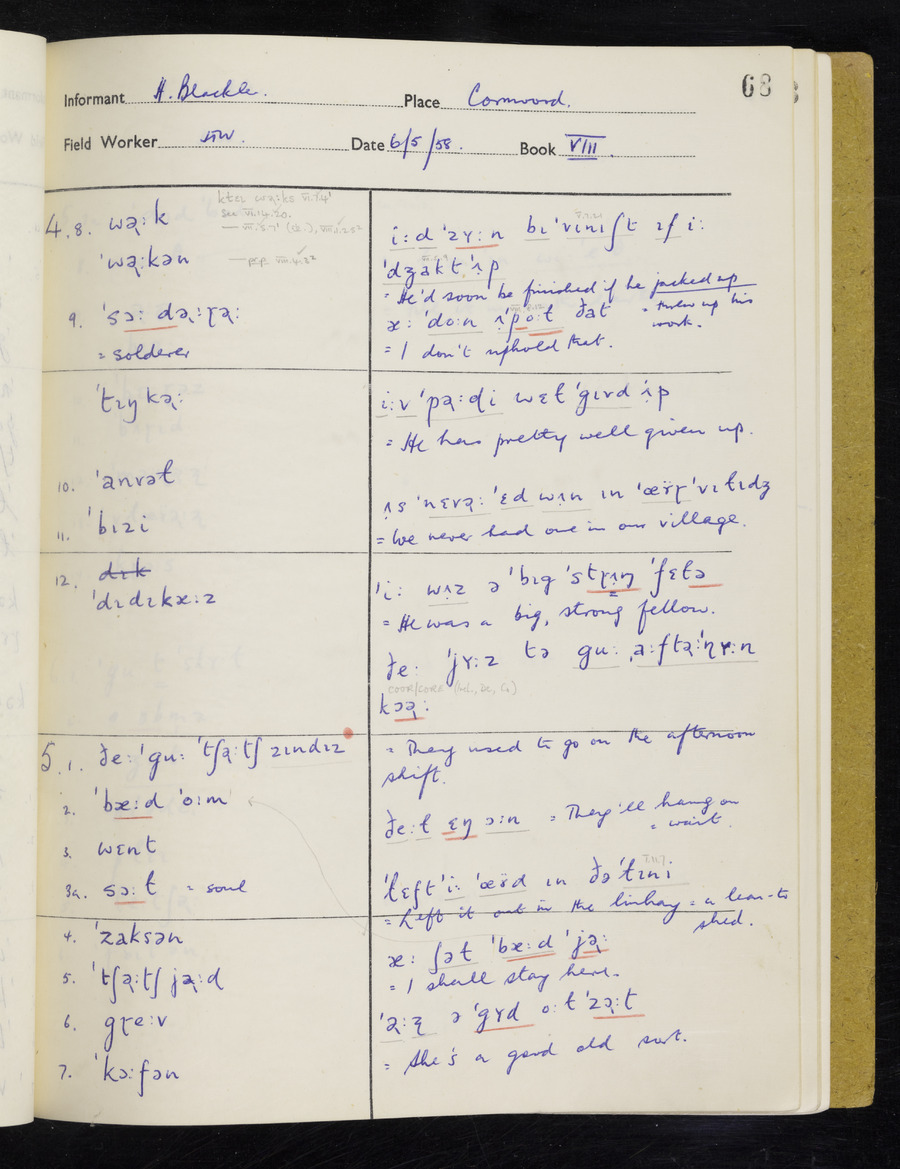 68
Informant H. Blackler. Place Cornwood.
Field Worker Date 6/5/58. Book VIII
4.8. wəː k
ˈwəːkən
9. ˈsɔː dəːɽəː
= solderer
ˈtɪŋkəː
10. ˈanvət
11. ˈbɪzi
12. dɪk
ˈdɪdɪkæːz
5.1. ðeː ˈguː ˈtʃəːtʃ zɪndɪz
2. ˈbæːd ˈoːm
3. wɛnt
3a. sɔːt = soul
4. ˈzaksən
5. ˈtʃəːtʃ jaːd
6. gɽeːv
7. ˈkɔːfən
iːd ˈzʏːn bɪ ˈvɪnɪʃt ɪf iː
ˈdʒakt ˈʌp
= He'd soon be finished if he jacked up
= threw up his
work.
æː ˈdoːn ʌˈpoːt ðat
= I don't uphold that.
iːv ˈpəːdi wɛt ˈgɪvd ʌp
= He has pretty well given up.
ʌs ˈnɛvəː ˈɛd wʌn ɪn ˈvɪtɪdʒ
= We never had one in our village.
ˈiː wʌz ə ˈbɪg ˈstɽʌŋ ˈfɛtə
= He was a big, strong fellow.
ðeː ˈjʏːz tə guː aːftəːˈnʏːn
COOR/CORE
kɔəː
= They used to go on the afternoon
shift.
ðeːt ɛŋ ɔːn = They'll hang on
= wait.
ˈtɛft ˈiː ɪn ðə ˈtɪni
= Left it out in the linhay = a lean-to
shed.
æː ʃət ˈbæːd ˈjəː
= I shall stay here.
ə ˈgʏd oːt ˈzəːt
= She's a good old sort.